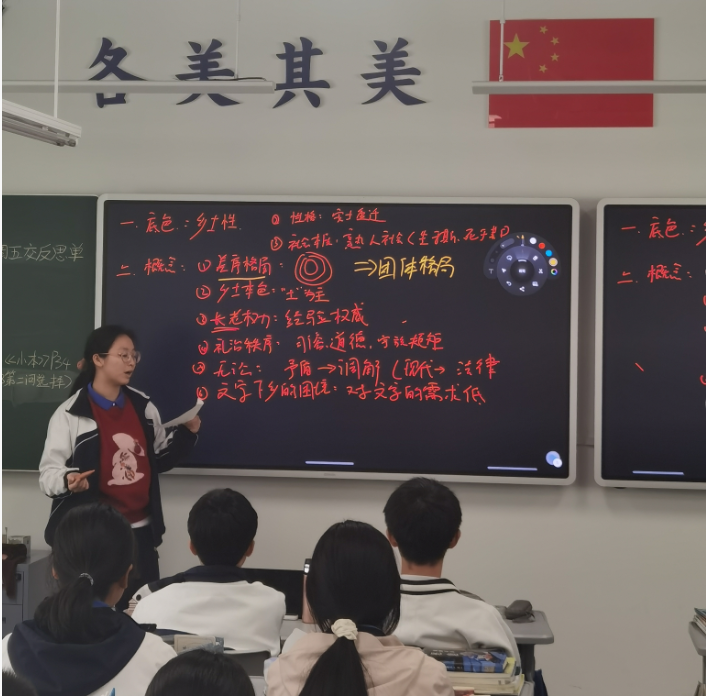 各美其美
一. 底色: 乡土性.
② 性格: 安土重迁
③ 社会
熟人社会(生于斯、死于斯)
二. 概念: ① 差序格局: ⇒团体格局
② 乡土本色: "土"为主
③ 长老权力: 经验权威
④ 礼治秩序: 习俗、道德、方孔规矩
⑤ 无讼: 矛盾→调解 (现代→ 法律
⑥ 文字下乡的困境: 对文字的需求低
一. 底色:
二. 概念:
周五交反思单
《小本》P34
第二问怎样)